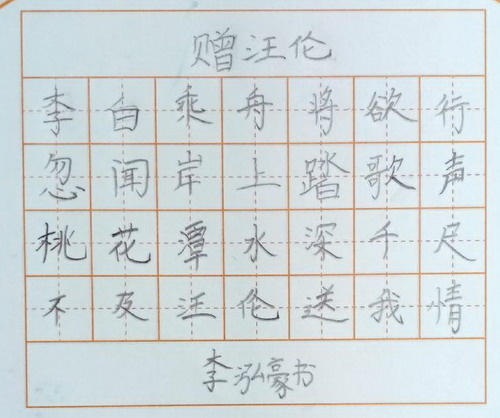 赠汪伦
李白乘舟将欲行
忽闻岸上踏歌声
桃花潭水深千尺
不及汪伦送我情
李泓豪书